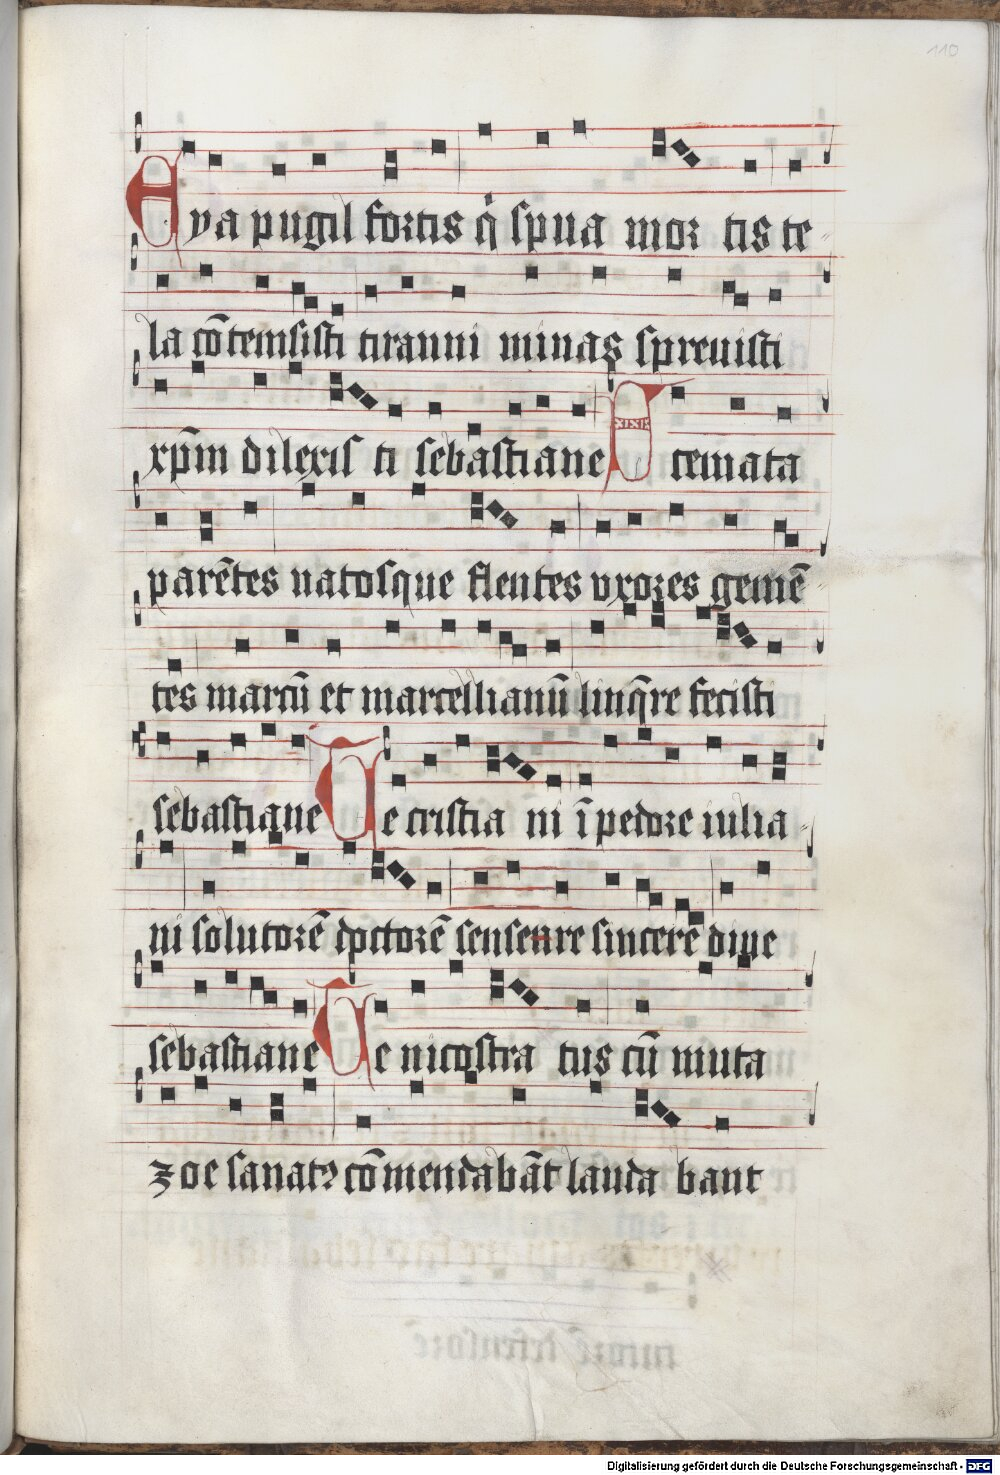 110
Eya pugil fortis q̇ spua mortis te
la cōtemsisti tiranni minas spreuisti
xp̄m dilexisti sebastiane Tu temata
parētes natosque flentes vxores gemē
tes marcū et marcellianū linq̄re fecisti
sebastiane Te cristiani ī pectore iulia
ni solutorē doctorē sensere sincere diue
sebastiane Te nicostratus cū muta
zoe sanatꝰ cōmendabāt laudabant
Digitalisierung gefördert durch die Deutsche Forschungsgemeinschaft - DFG